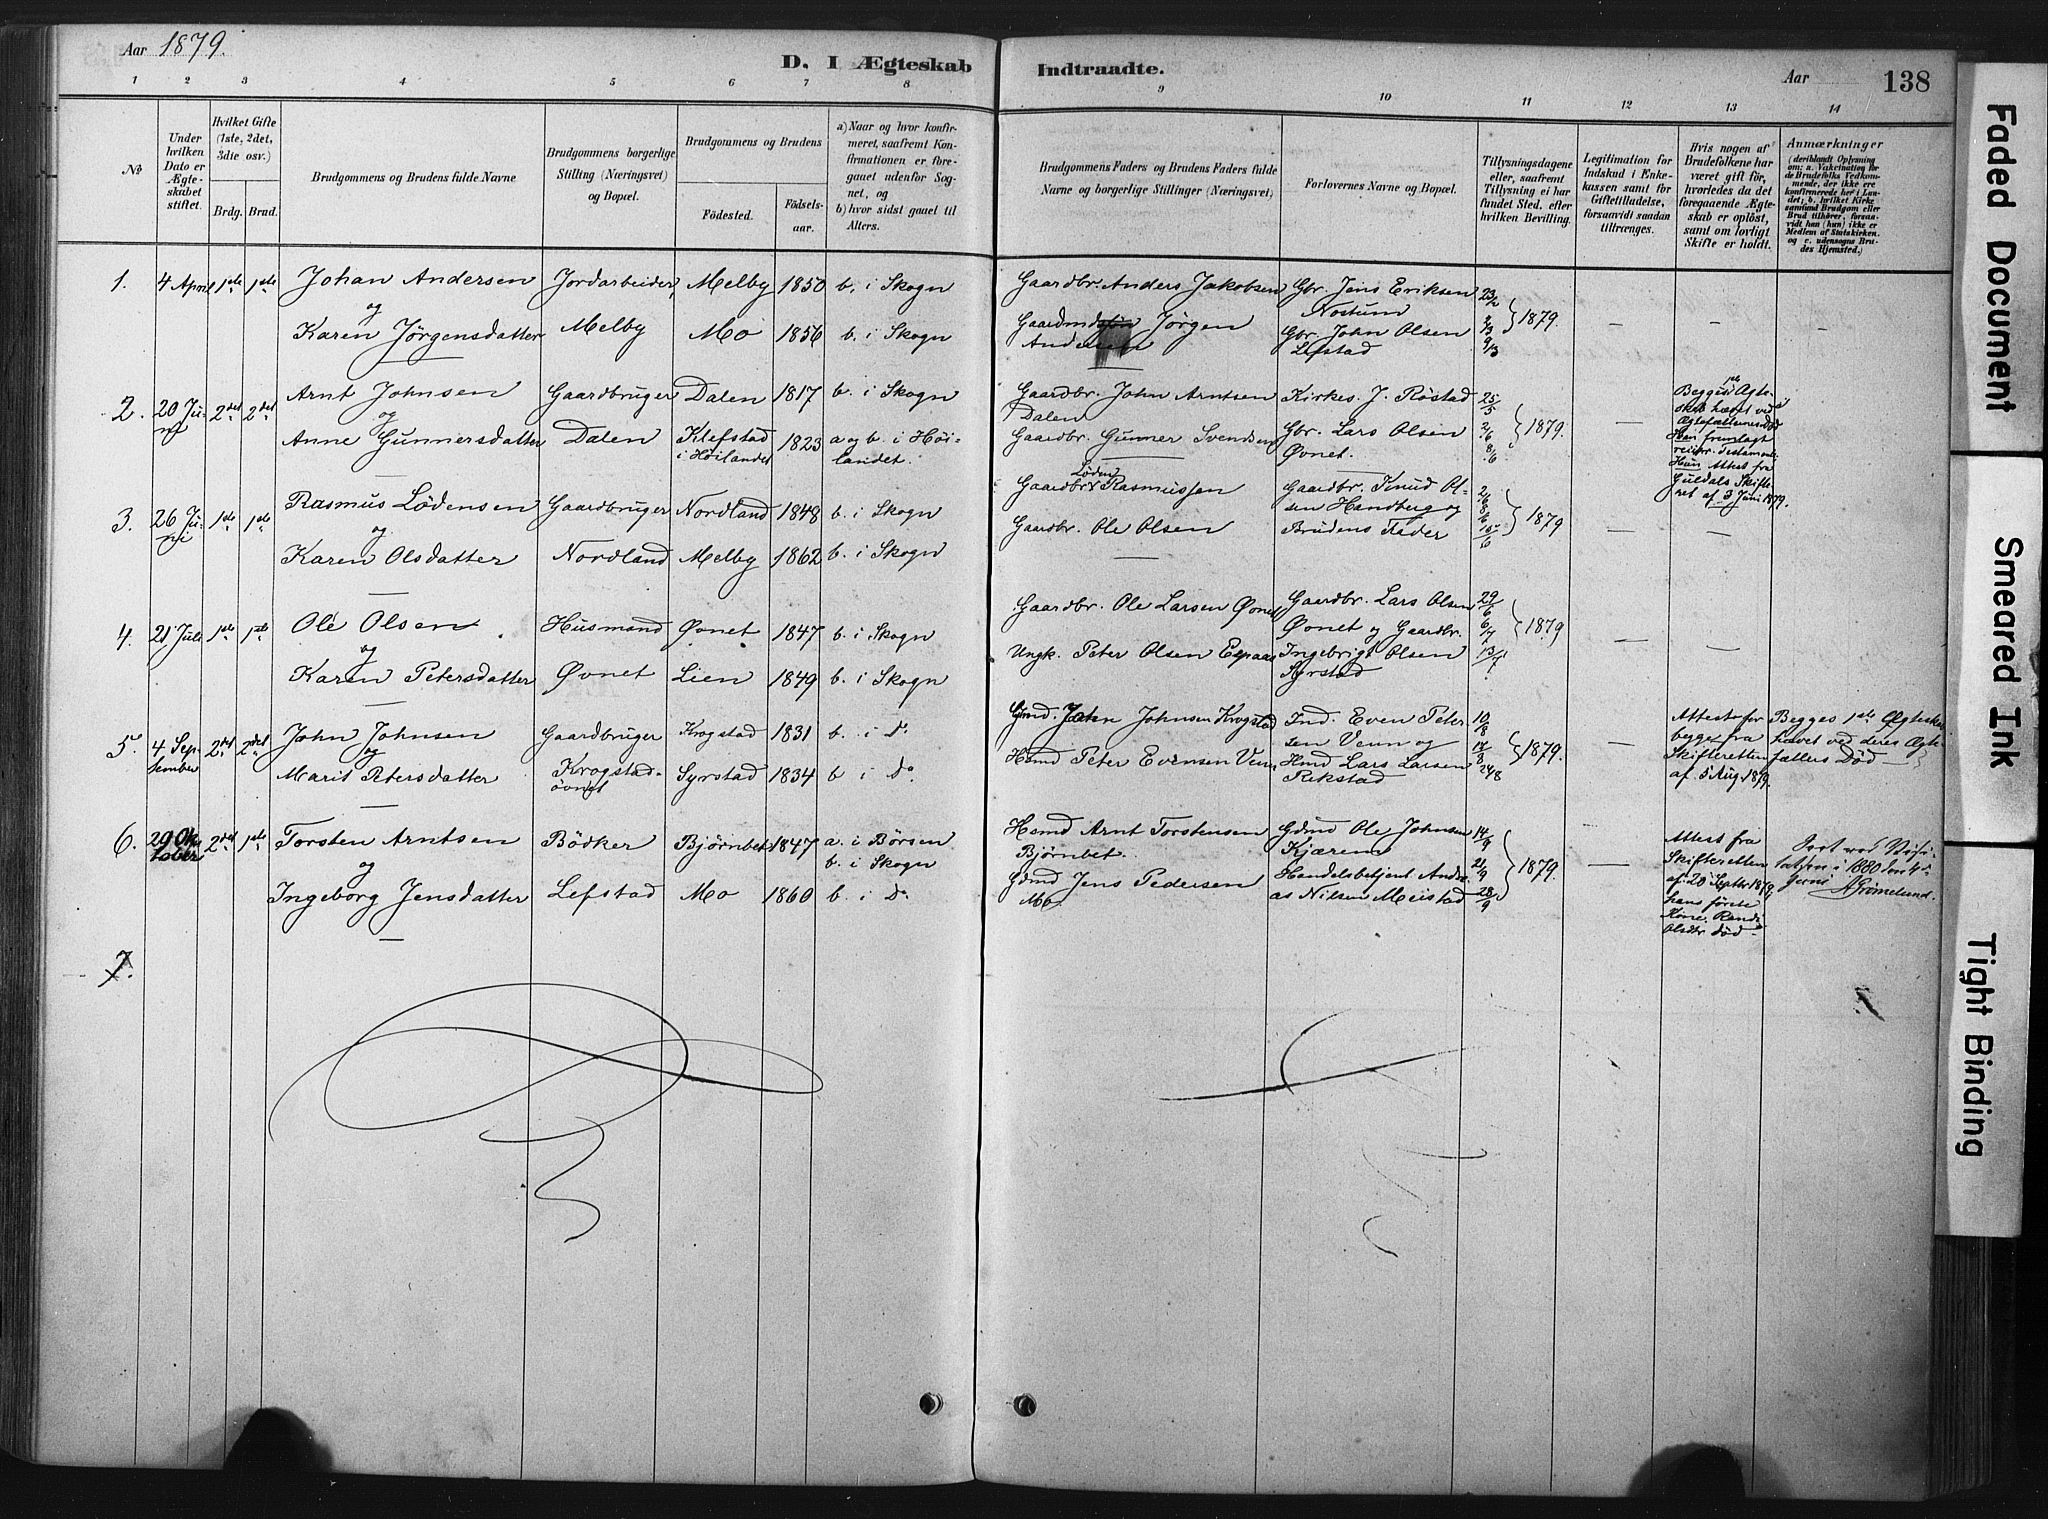 Aar 1879.
D. I Ægteskab
Indtraadte.
Aar
138
1 2 3 4 5 6 7 8
9 10 11 12 13 14
No
Under hvilken Dato er Ægteskabet stiftet.
Hvilket Gifte (1ste, 2det, 3die osv.)
Brdg. Brud.
Brudgommens og Brudens fulde Navne
Brudgommens borgerlige Stilling (Næringsvei) og Bopæl.
Brudgommens og Brudens
Fødested.
Fødsels-aar.
a) Naar og hvor konfirmeret, saafremt Konfirmationen er foregaaet udenfor Sognet, og
b) hvor sidst gaaet til Alters.
Brudgommens Faders og Brudens Faders fulde Navne og borgerlige Stillinger (Næringsvei)
Forlovernes Navne og Bopæl.
Tillysningsdagene eller, saafremt Tillysning ei har fundet Sted, efter hvilken Bevilling.
Legitimation for Indskud i Enkekassen samt for Giftetilladelse, forsaavidt saadan tiltrænges.
Hvis nogen af Brudefolkene har været gift før, hvorledes da det foregaaende Ægteskab er opløst, samt om lovligt Skifte er holdt.
Anmærkninger
(deriblandt Oplysning om: a. Vakcination for de Brudefolks Vedkommende, der ikke ere konfirmerede her i Landet; b. hvilket Kirkesamfund Brudgom eller Brud tilhører, forsaavidt han (hun) ikke er Medlem af Statskirken. og c. udensogns Brudes Hjemsted.)
1. 4 April 1ste 1ste Johan Andersen Jordarbeider, Melby 1850 b. i Skogn
og
Karen Jörgensdatter Melby Mo 1856 b. i Skogn
Gaardbr. Anders Jakobsen Gbr. Jens Eriksen 23/2
Nostum 2/3 1879. — — —
Gaardmd Jörgen Gbr. John Olsen 9/3
Andersen Lefstad
2. 20 Juni 2det 2det Arnt Johnsen Gaardbruger Dalen 1817 b. i Skogn
og
Anne Gunnersdatter Dalen Klefstad i Höilandet 1823 a og b. i Höilandet.
Gaardbr. John Arntsen Kirkes. J. Röstad 25/5
Dalen 1879. —
Gaardbr. Gunner Svendsen Gbr. Lars Olsen 2/6
Øvnet. 8/6
Begges 1ste Ægteskab hævet ved Ægtefællernes Död
Han fremlagt
Hun Attest fra
Guldals Skifteret af 3 Juni 1879.
3. 26 Juni 1ste 1ste Rasmus Lödensen Gaardbruger Nordland 1848 b. i Skogn
og
Karen Olsdatter Nordland Melby 1862 b. i Skogn
Löden
Gaardbr. Rasmussen Gaardbr. Knud Olsen Handberg og 2/6 8/6
Gaardbr. Ole Olsen Brudens Fader 15/6 1879 — —
4. 21 Juli 1ste 1ste Ole Olsen Husmand Øvnet 1847 b. i Skogn
og
Karen Petersdatter Øvnet Lien 1849 b. i Skogn
Gaardbr. Ole Larsen Øvnet Gaardbr. Lars Olsen 29/6
Øvnet og Gaardbr. 6/7 1879 — —
Ungk. Peter Olsen Espaas Ingebrigt Olsen 13/7
Syrstad
5. 4 September 2det 2det John Johnsen Gaardbruger Krogstad 1831 b. i Do
og
Marit Petersdatter Krogstadövnet Syrstad 1834 b i Do
Gmd. John Johnsen Krogstad Ind. Even Petersen Venn og 10/8
Hsmd Peter Evensen Venn Hsmd Lars Larsen 17/8 1879. —
Rekstad 24/8
Attest for begge fra Skifteretten af 5 Aug. 1879.
Begges 1ste Ægteskab hævet ved deres Ægtefællers Död
6. 29 Oktober 2det 1ste Torsten Arntsen Bödker Bjørnbet 1847 a. i Börsen
b. i Skogn
og
Ingeborg Jensdatter Lefstad Mo 1860 b. i Do
Hsmd Arnt Torstensen Gdmd Ole Johnsen 14/9
Bjørnbet. Kjærem 21/9 1879. —
Gdmd Jens Pedersen Handelsbetjent Andreas Nilsen Meistad 28/9
Mo
Attest fra Skifteretten af 20 Septbr 1879, hans förste Kone Randi Olsdtr död
i 1880 den 4de
7.
Faded Document
Smeared Ink
Tight Binding